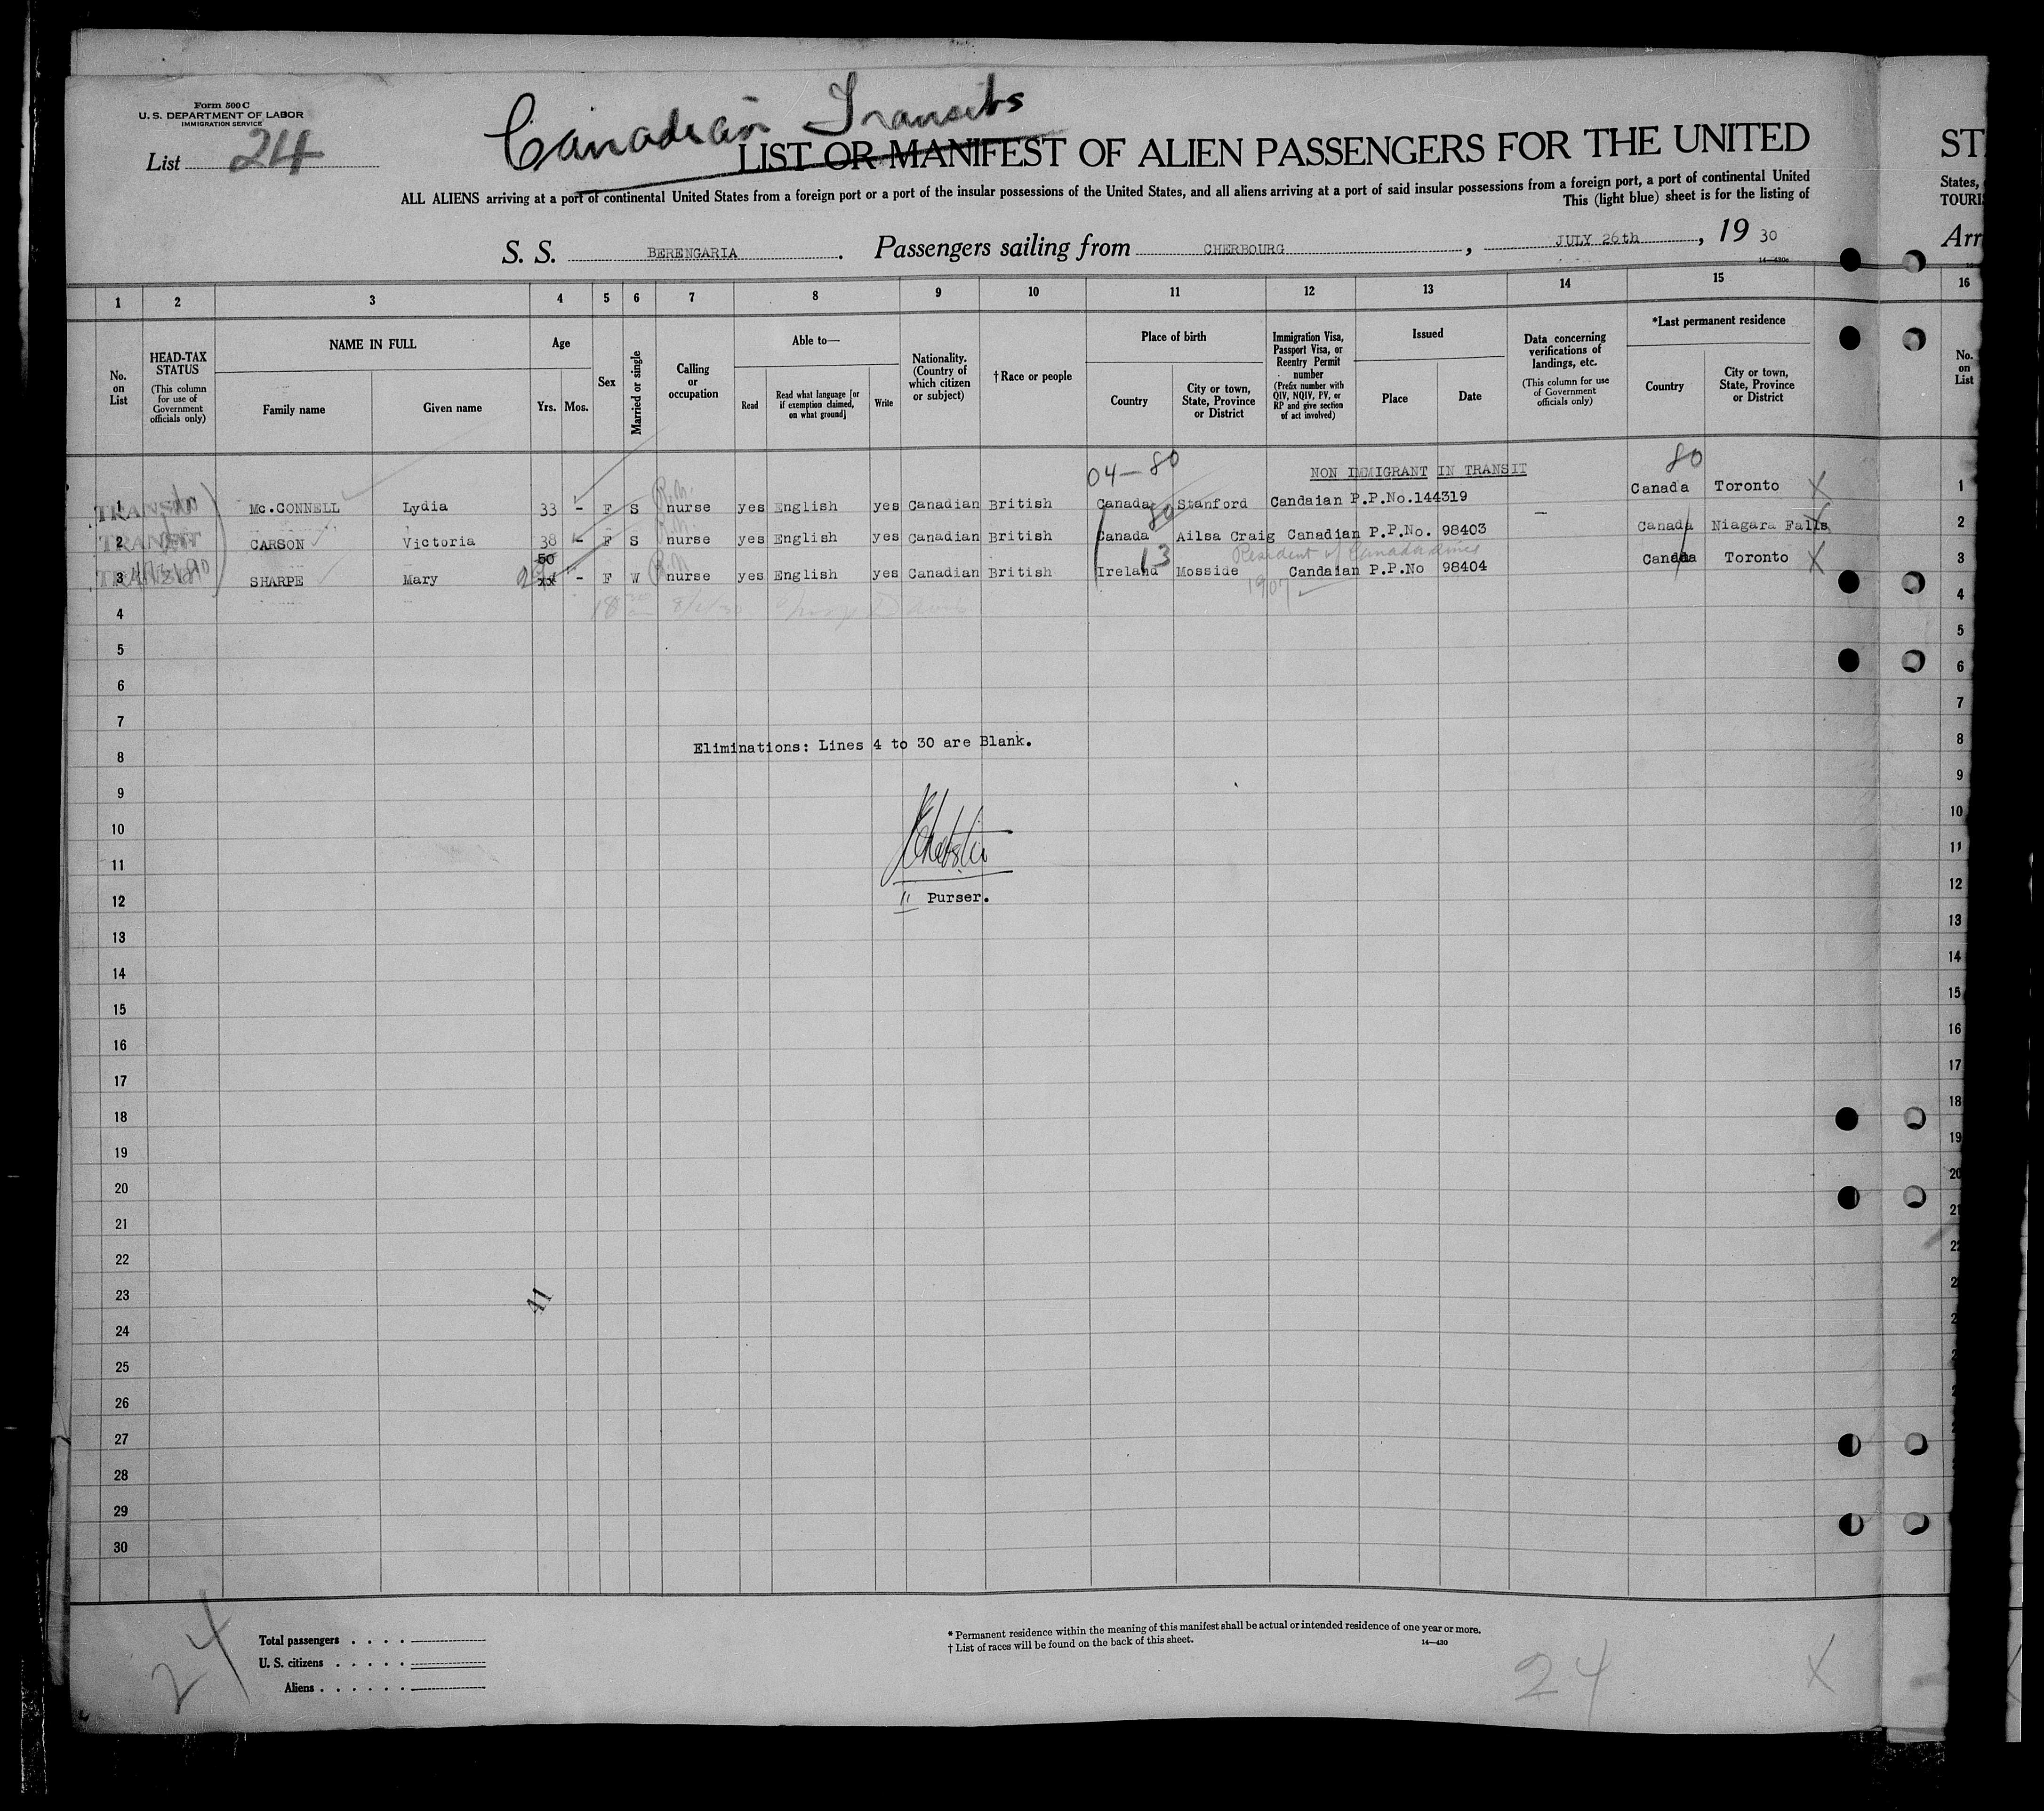 Form 500 C
U. S. DEPARTMENT OF LABOR
IMMIGRATION SERVICE
List 24
Canadian Transits
LIST OR MANIFEST OF ALIEN PASSENGERS FOR THE UNITED
ST
ALL ALIENS arriving at a port of continental United States from a foreign port or a port of the insular possessions of the United States, and all aliens arriving at a port of said insular possessions from a foreign port, a port of continental United
States,
This (light blue) sheet is for the listing of
TOURI
S. S. BERENGARIA. Passengers sailing from CHERBOURG, JULY 26th, 19 30
Arr
14—430c
1 2 3 4 5 6 7 8 9 10 11 12 13 14 15 16
No. on List
HEAD-TAX STATUS (This column for use of Government officials only)
NAME IN FULL
Family name Given name
Age
Yrs. Mos.
Sex
Married or single
Calling or occupation
Able to—
Read
Read what language [or if exemption claimed, on what ground]
Write
Nationality. (Country of which citizen or subject)
†Race or people
Place of birth
Country
City or town, State, Province or District
Immigration Visa, Passport Visa, or Reentry Permit number (Prefix number with QIV, NQIV, PV, or RP and give section of act involved)
Issued
Place Date
Data concerning verifications of landings, etc. (This column for use of Government officials only)
*Last permanent residence
Country
City or town, State, Province or District
No. on List
04—80 NON IMMIGRANT IN TRANSIT 80
TRANSIT 1 Mc.CONNELL Lydia 33 - F S R.N. nurse yes English yes Canadian British Canada Stanford Candaian P.P.No.144319 Canada Toronto X 1
80
TRANSIT 2 CARSON Victoria 38 - F S R.N. nurse yes English yes Canadian British Canada Ailsa Craig Canadian P.P.No. 98403 Canada Niagara Falls X 2
50 13 Resident of Canada since
TRANSIT 3 SHARPE Mary xx - F W R.N. nurse yes English yes Canadian British Ireland Mosside Candaian P.P.No 98404 Canada Toronto X 3
1907
4 8/1/30 4
5 5
6 6
7 7
8 Eliminations: Lines 4 to 30 are Blank. 8
9 9
10 10
11 11
12 Purser. 12
13 13
14 14
15 15
16 16
17 17
18 18
19 19
20 20
21 21
22 22
23 41
24
25
26
27
28
29
30
24
Total passengers . . . .
U. S. citizens . . . . .
Aliens . . . . . .
* Permanent residence within the meaning of this manifest shall be actual or intended residence of one year or more.
† List of races will be found on the back of this sheet.
14—430
24 X